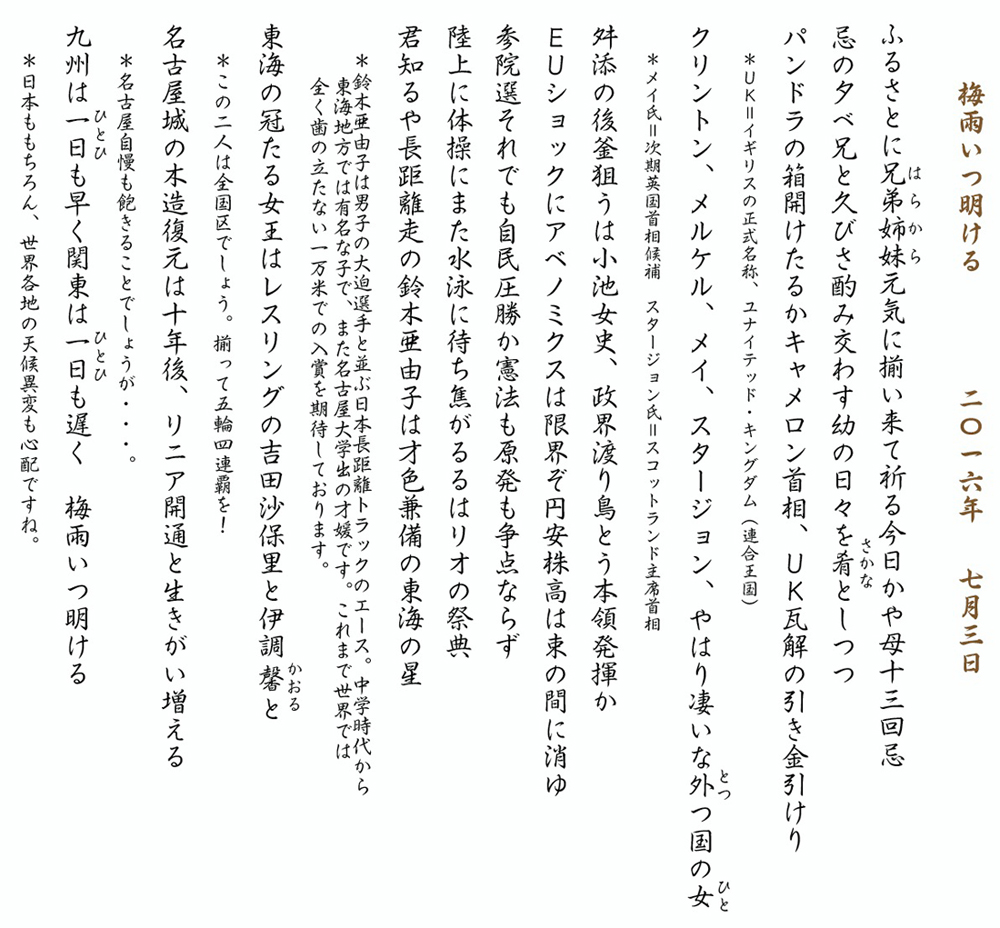 梅雨いつ明ける　　　二〇一六年　七月三日
ふるさとに兄弟姉妹元気に揃い来て祈る今日かや母十三回忌
はらから
忌の夕べ兄と久びさ酌み交わす幼の日々を肴としつつ
さかな
パンドラの箱開けたるかキャメロン首相、ＵＫ瓦解の引き金引けり
＊ＵＫ＝イギリスの正式名称、ユナイテッド・キングダム（連合王国）
クリントン、メルケル、メイ、スタージョン、やはり凄いな外つ国の女
とつ
ひと
＊メイ氏＝次期英国首相候補　スタージョン氏＝スコットランド主席首相
舛添の後釜狙うは小池女史、政界渡り鳥とう本領発揮か
ＥＵショックにアベノミクスは限界ぞ円安株高は束の間に消ゆ
参院選それでも自民圧勝か憲法も原発も争点ならず
陸上に体操にまた水泳に待ち焦がるるはリオの祭典
君知るや長距離走の鈴木亜由子は才色兼備の東海の星
＊鈴木亜由子は男子の大迫選手と並ぶ日本長距離トラックのエース。中学時代から
東海地方では有名な子で、また名古屋大学出の才媛です。これまで世界では
全く歯の立たない一万米での入賞を期待しております。
東海の冠たる女王はレスリングの吉田沙保里と伊調馨と
かおる
＊この二人は全国区でしょう。揃って五輪四連覇を！
名古屋城の木造復元は十年後、リニア開通と生きがい増える
＊名古屋自慢も飽きることでしょうが・・・。
九州は一日も早く関東は一日も遅く　梅雨いつ明ける
ひとひ
ひとひ
＊日本ももちろん、世界各地の天候異変も心配ですね。